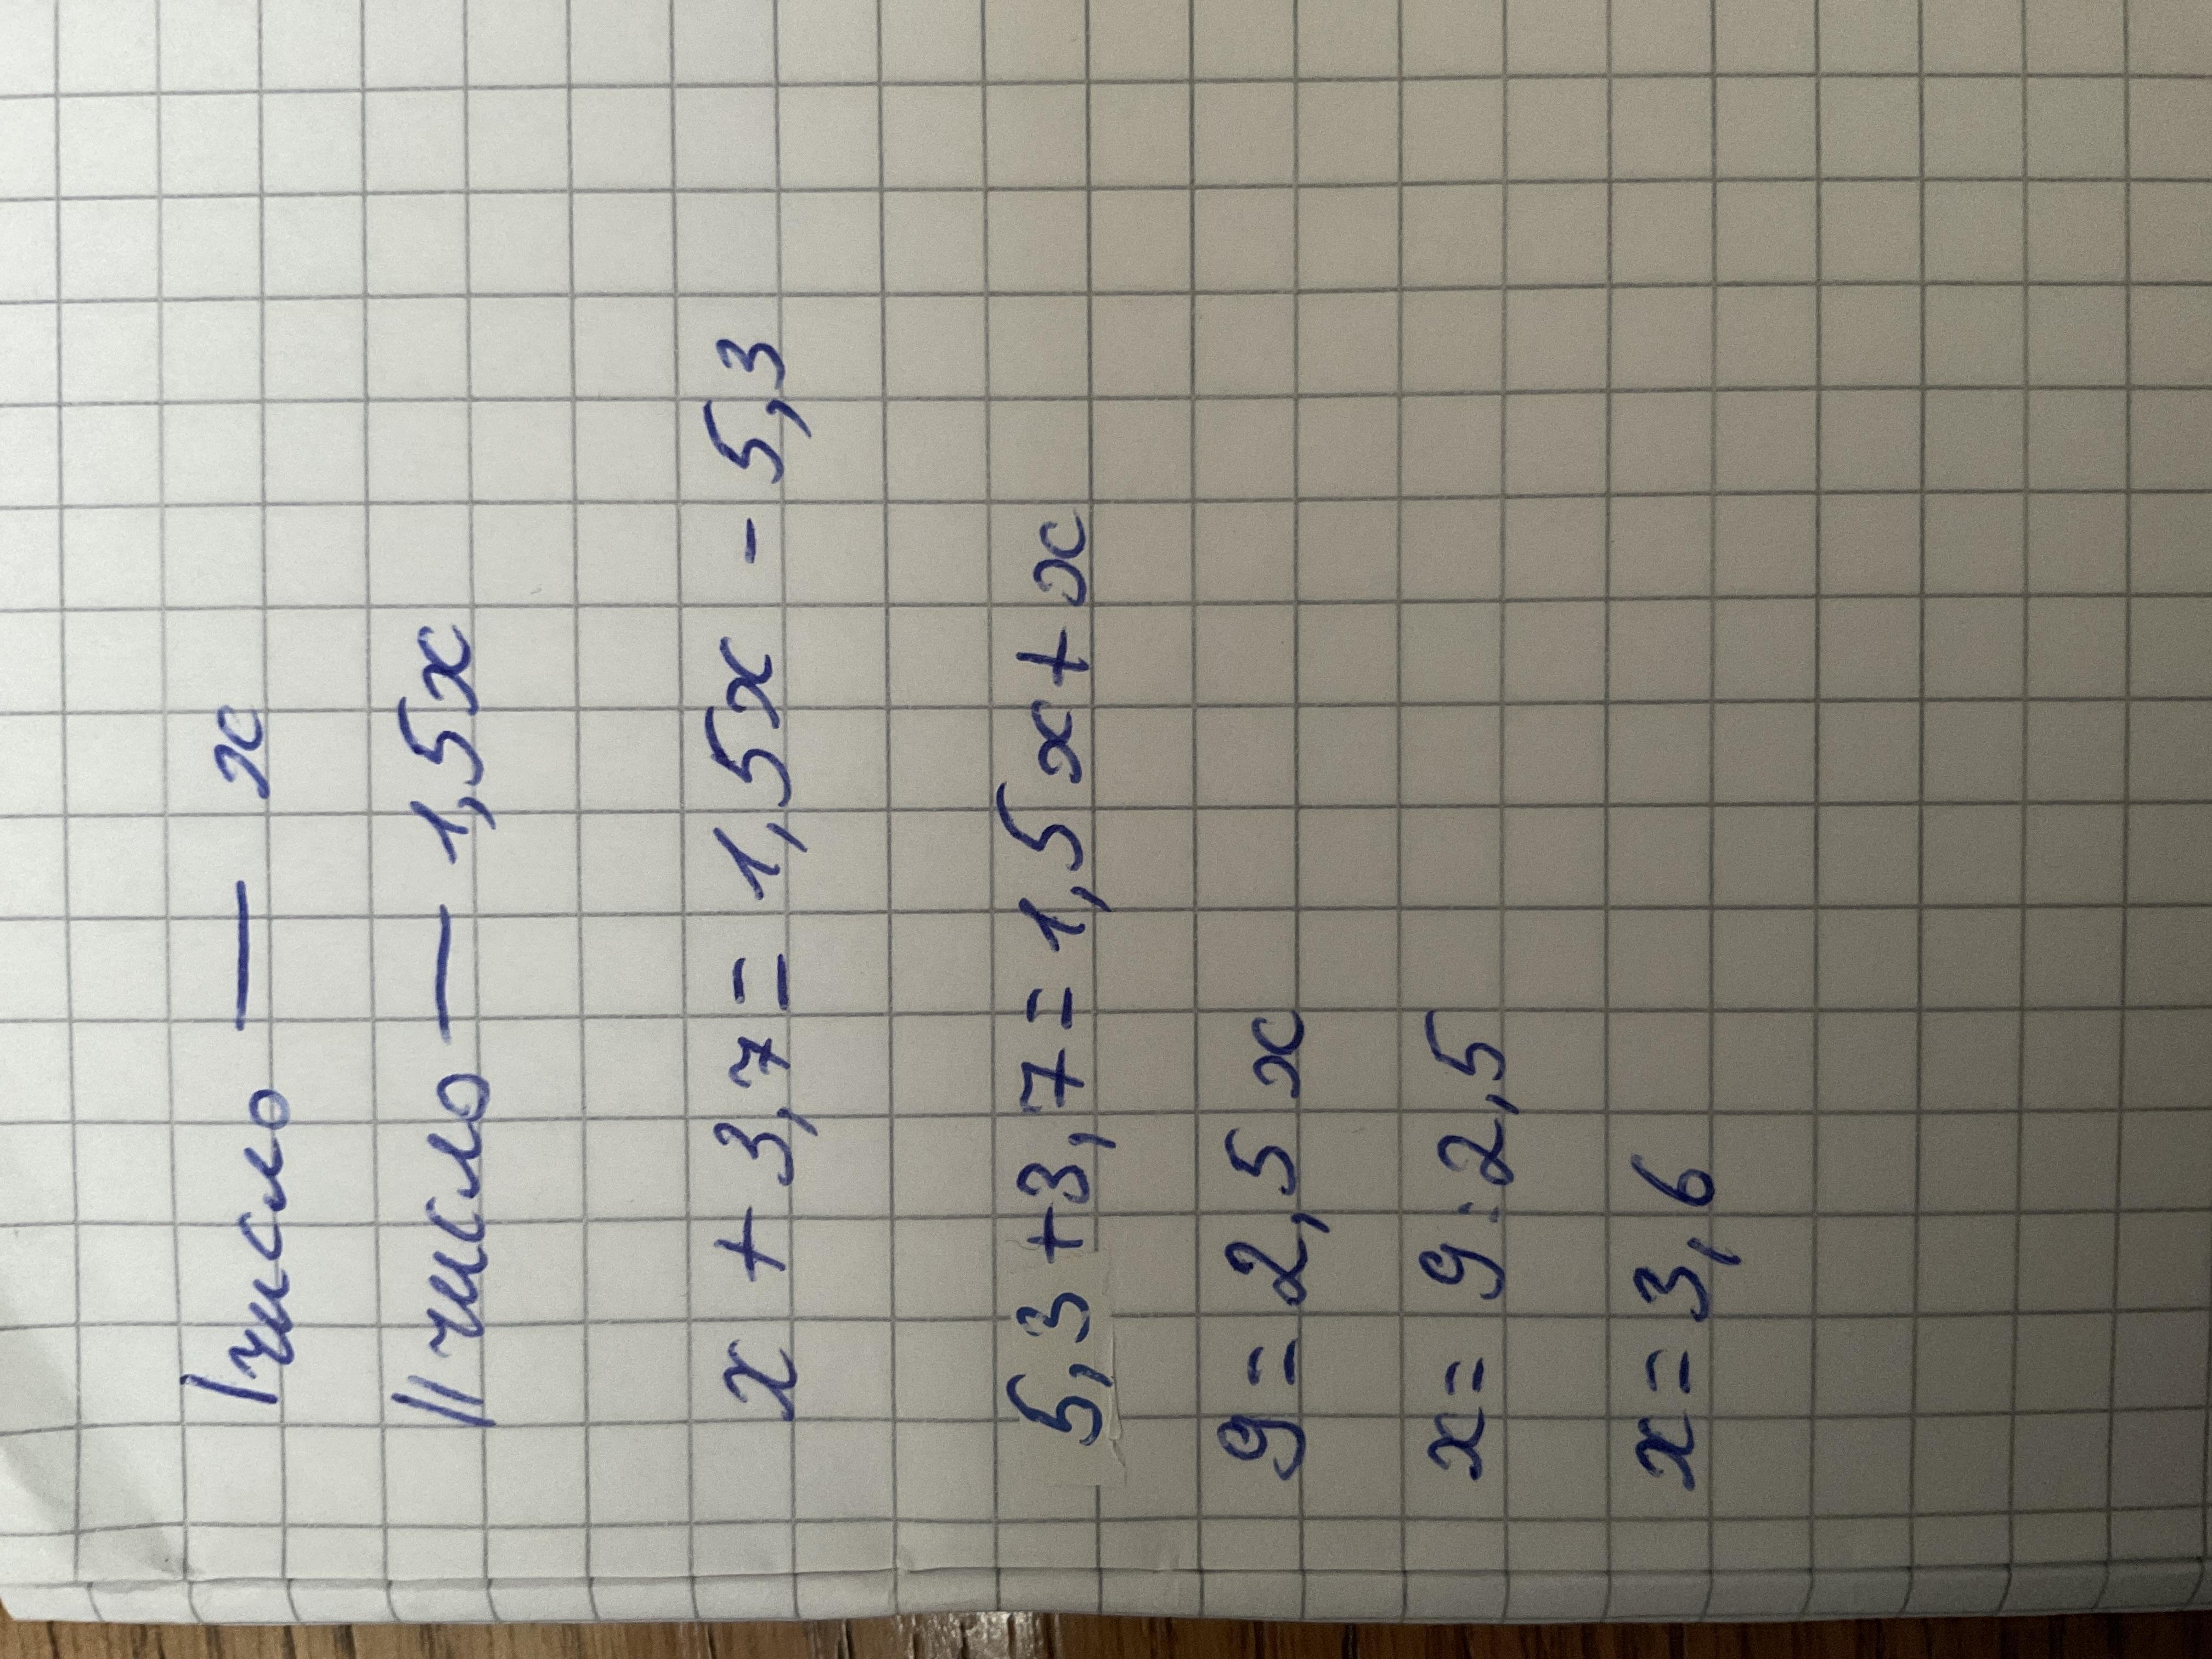 I число — x
II число — 1,5x
x + 3,7 = 1,5x - 5,3
5,3 + 3,7 = 1,5x + x
9 = 2,5x
x = 9 : 2,5
x = 3,6